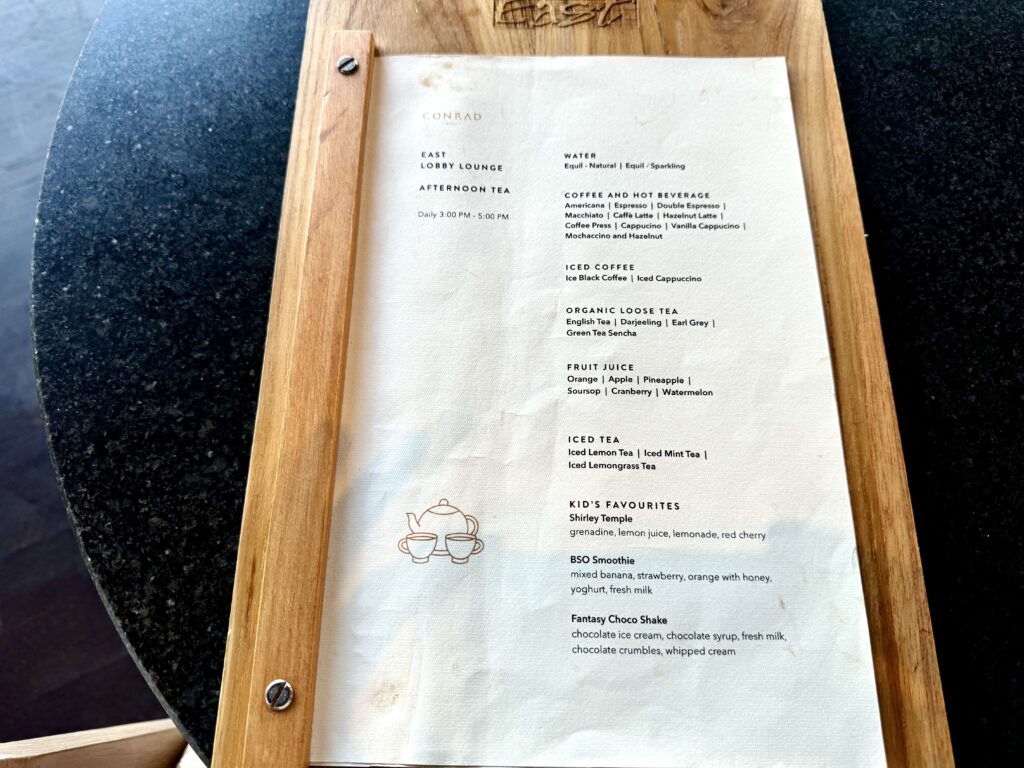 East
CONRAD
EAST
LOBBY LOUNGE
AFTERNOON TEA
Daily 3:00 PM - 5:00 PM
WATER
Equil - Natural | Equil - Sparkling
COFFEE AND HOT BEVERAGE
Americana | Espresso | Double Espresso |
Macchiato | Caffè Latte | Hazelnut Latte |
Coffee Press | Cappucino | Vanilla Cappucino |
Mochaccino and Hazelnut
ICED COFFEE
Ice Black Coffee | Iced Cappuccino
ORGANIC LOOSE TEA
English Tea | Darjeeling | Earl Grey |
Green Tea Sencha
FRUIT JUICE
Orange | Apple | Pineapple |
Soursop | Cranberry | Watermelon
ICED TEA
Iced Lemon Tea | Iced Mint Tea |
Iced Lemongrass Tea
KID'S FAVOURITES
Shirley Temple
grenadine, lemon juice, lemonade, red cherry
BSO Smoothie
mixed banana, strawberry, orange with honey,
yoghurt, fresh milk
Fantasy Choco Shake
chocolate ice cream, chocolate syrup, fresh milk,
chocolate crumbles, whipped cream